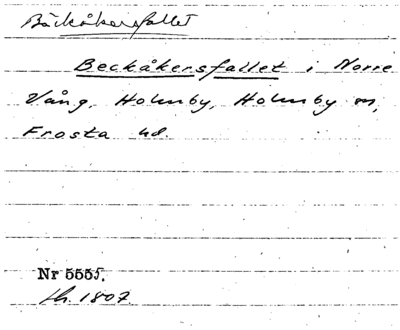 Bäckåkersfallet
Beckåkersfallet i Norre
Vång, Holmby, Holmby sn,
Frosta hd.
Nr 5555.
th. 1807